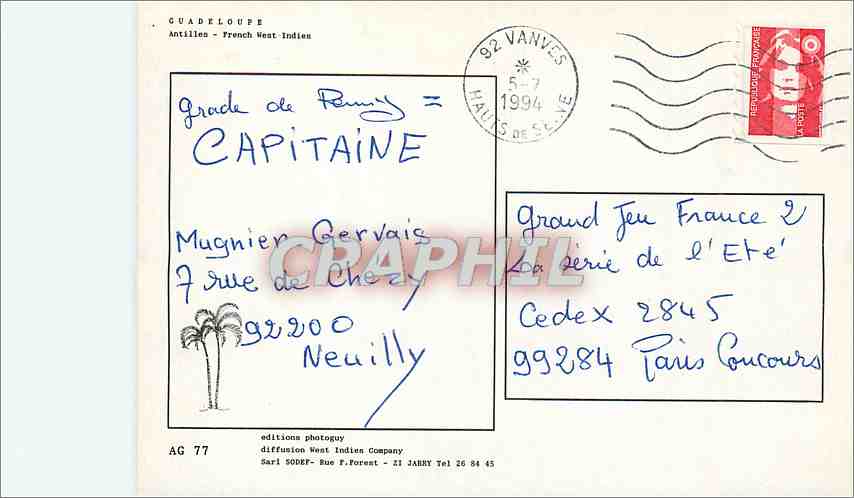 GUADELOUPE
Antilles - French West Indies
92 VANVES
5-7
1994
HAUTS DE SEINE
REPUBLIQUE FRANÇAISE
LA POSTE
grade de =
CAPITAINE
Mugnier Gervais
7 rue de Chezy
92200
Neuilly
CPAPHIL
Grand Jeu France 2
La série de l'Eté
Cedex 2845
99284 Paris Concours
AG 77
editions photoguy
diffusion West Indies Company
Sarl SODEF- Rue F.Forest - ZI JARRY Tel 26 84 45